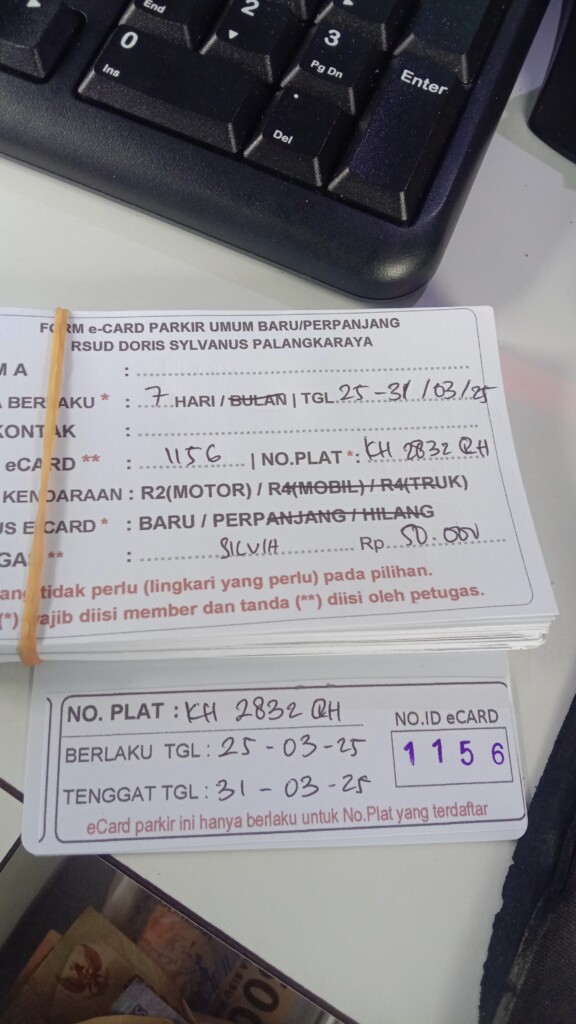 End
2
0
Ins
3
Pg Dn
Enter
.
Del
FORM e-CARD PARKIR UMUM BARU/PERPANJANG
RSUD DORIS SYLVANUS PALANGKARAYA
MA : ..........
BERLAKU * : 7 HARI / BULAN | TGL 25-31/03/25
KONTAK : ..........
eCARD ** : 1156 | NO.PLAT *: KH 2832 QH
KENDARAAN : R2(MOTOR) / R4(MOBIL) / R4(TRUK)
US ECARD * : BARU / PERPANJANG / HILANG
GAS ** : SILVIA Rp 50.000
tidak perlu (lingkari yang perlu) pada pilihan.
(*) wajib diisi member dan tanda (**) diisi oleh petugas.
NO. PLAT : KH 2832 QH
NO.ID eCARD
BERLAKU TGL : 25-03-25
1156
TENGGAT TGL : 31-03-25
eCard parkir ini hanya berlaku untuk No.Plat yang terdaftar